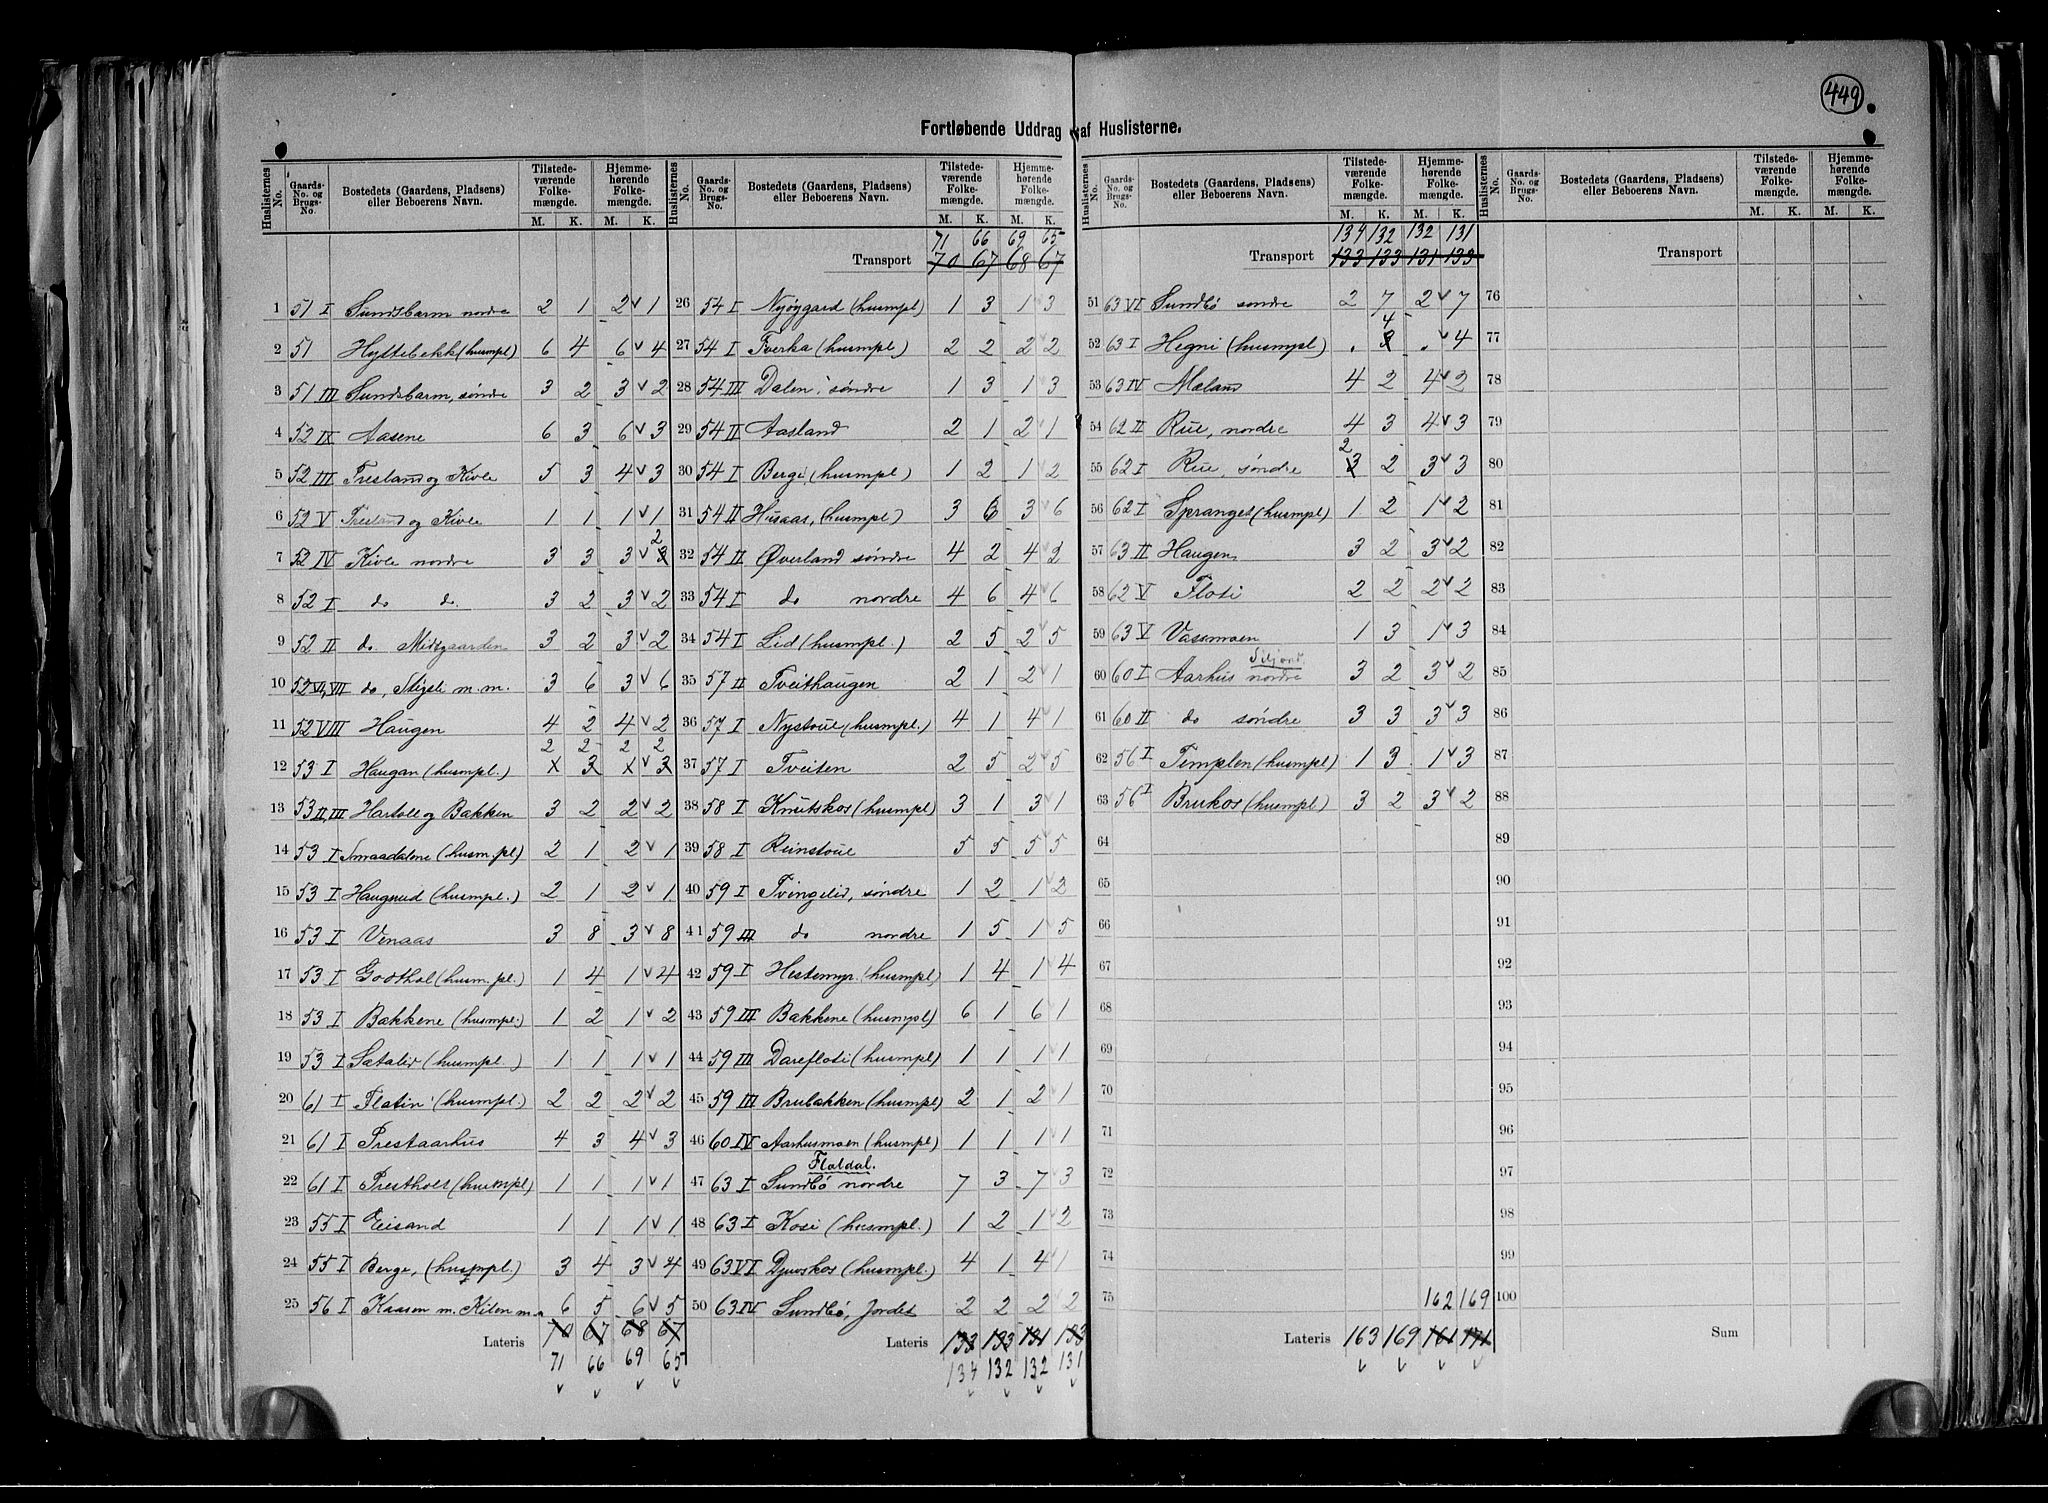 449
Fortløbende Uddrag af Huslisterne.
Huslisternes No. Gaards-No. og Brugs-No. Bostedets (Gaardens, Pladsens) eller Beboerens Navn. Tilstedeværende Folkemængde. M. K. Hjemmehørende Folkemængde. M. K.
1 51 I Sundsbarm nordre 2 1 2 v 1
2 51 Hyttebekk (husmpl) 6 4 6 v 4
3 51 III Sundsbarm, søndre 3 2 3 v 2
4 52 IX Aasene 6 3 6 v 3
5 52 III Tresland og Kivle 5 3 4 v 3
6 52 V Tresland og Kivle 1 1 1 v 1
7 52 IV Kivle nordre 3 3 3 v 3 2
8 52 I do d. 3 2 3 v 2
9 52 II do. Midtgaarden 3 2 3 v 2
10 52 VI, VII do, Stigsli m.m. 3 6 3 v 6
11 52 VIII Haugen 4 2 4 v 2
2 2 2 2
12 53 I Haugan (husmpl.) x 3 x v 3
13 53 II, III Hartvle og Bakken 3 2 2 v 2
14 53 I Smaadalene (husm.pl) 2 1 2 v 1
15 53 I Haugrud (husmpl.) 2 1 2 v 1
16 53 I Venaas 3 8 3 v 8
17 53 I Godthol (husm.pl.) 1 4 1 v 4
18 53 I Bækkene (husmpl.) 1 2 1 v 2
19 53 I Sætalid (husmpl.) 1 1 1 v 1
20 61 I Flatin (husmpl.) 2 2 2 v 2
21 61 I Prestaarhus 4 3 4 v 3
22 61 I Prestholt (husmpl) 1 1 1 v 1
23 55 I Eisand 1 1 1 v 1
24 55 I Berge, (husmpl.) 3 4 3 v 4
25 56 I Kaasen m. Kilen m.m 6 5 6 v 5
Lateris 70 67 68 67
71 66 69 65
v v v v
Huslisternes No. Gaards-No. og Brugs-No. Bostedets (Gaardens, Pladsens) eller Beboerens Navn. Tilstedeværende Folkemængde. M. K. Hjemmehørende Folkemængde. M. K.
71 66 69 65
Transport 70 67 68 67
26 54 I Nyøygard (husmpl) 1 3 1 v 3
27 54 I Tverka (husmpl.) 2 2 2 v 2
28 54 III Dalen, søndre 1 3 1 v 3
29 54 II Aasland 2 1 2 v 1
30 54 I Berge, (husmpl) 1 2 1 v 2
31 54 II Husaas, (husmpl) 3 6 3 v 6
32 54 II Øverland søndre 4 2 4 v 2
33 54 I do nordre 4 6 4 v 6
34 54 I Lid (husmpl.) 2 5 2 v 5
35 57 II Tveithaugen 2 1 2 v 1
36 57 I Nystoul (husmpl.) 4 1 4 v 1
37 57 I Tveiten 2 5 2 v 5
38 58 I Knutskos (husmpl) 3 1 3 v 1
39 58 I Reinstoul 5 5 5 v 5
40 59 I Tvingelid, søndre 1 2 1 v 2
41 59 III do nordre 1 5 1 v 5
42 59 I Hestemyr. (husmpl) 1 4 1 v 4
43 59 III Bækkene (husmpl) 6 1 6 v 1
44 59 III Darefloti (husmpl) 1 1 1 v 1
45 59 III Brubækken (husmpl) 2 1 2 v 1
46 60 IV Aarhusmoen (husmpl) 1 1 1 v 1
Flatdal.
47 63 I Sundbø nordre 7 3 7 v 3
48 63 I Kosi (husmpl.) 1 2 1 v 2
49 63 VI Djuvskos (husmpl.) 4 1 4 v 1
50 63 IV Sundbø, Jordet 2 2 2 v 2
Lateris 133 133 131 133
134 132 132 131
v v v v
Huslisternes No. Gaards-No. og Brugs-No. Bostedets (Gaardens, Pladsens) eller Beboerens Navn. Tilstedeværende Folkemængde. M. K. Hjemmehørende Folkemængde. M. K.
134 132 132 131
Transport 133 133 131 133
51 63 VI Sundbø søndre 2 7 2 v 7
4
52 63 I Hegni (husmpl) . 3 . v 4
53 63 IV Mæland 4 2 4 v 2
54 62 II Rue, nordre 4 3 4 v 3
2
55 62 I Rue, søndre 3 2 3 v 3
56 62 I Spranget (husmpl) 1 2 1 v 2
57 63 II Haugen 3 2 3 v 2
58 62 V Floti 2 2 2 v 2
59 63 V Vassmoen 1 3 1 v 3
Siljord.
60 60 I Aarhus nordre 3 2 3 v 2
61 60 II do søndre 3 3 3 v 3
62 56 I Templen (husmpl) 1 3 1 v 3
63 56 I Brukos (husmpl) 3 2 3 v 2
64
65
66
67
68
69
70
71
72
73
74
75 162 169
Lateris 163 169 161 171
v v v v
Huslisternes No. Gaards-No. og Brugs-No. Bostedets (Gaardens, Pladsens) eller Beboerens Navn. Tilstedeværende Folkemængde. M. K. Hjemmehørende Folkemængde. M. K.
Transport
76
77
78
79
80
81
82
83
84
85
86
87
88
89
90
91
92
93
94
95
96
97
98
99
100
Sum